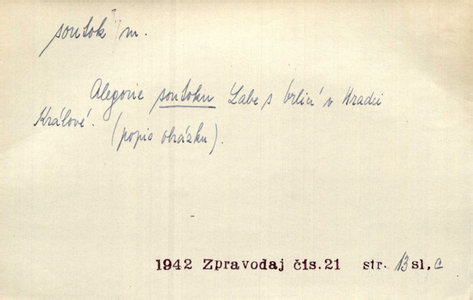 soutok m.
Alegorie soutoku Labe s Orlicí v Hradci
Králové.
(popis obrázku).
1942 Zpravodaj čís.21 str. 13 sl, C